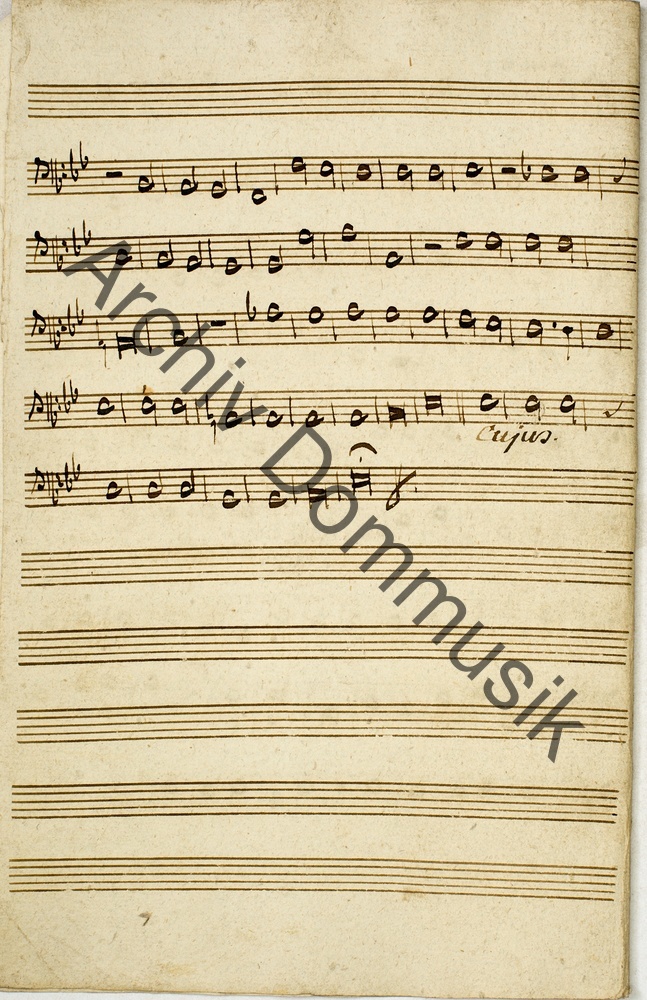 cujus.
Archiv Dommusik